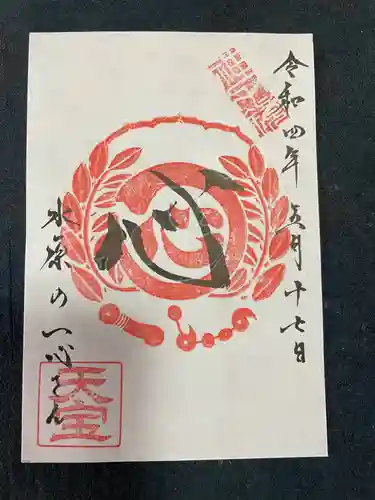 令和四年五月十七日
心
水原の一心さん
天宝